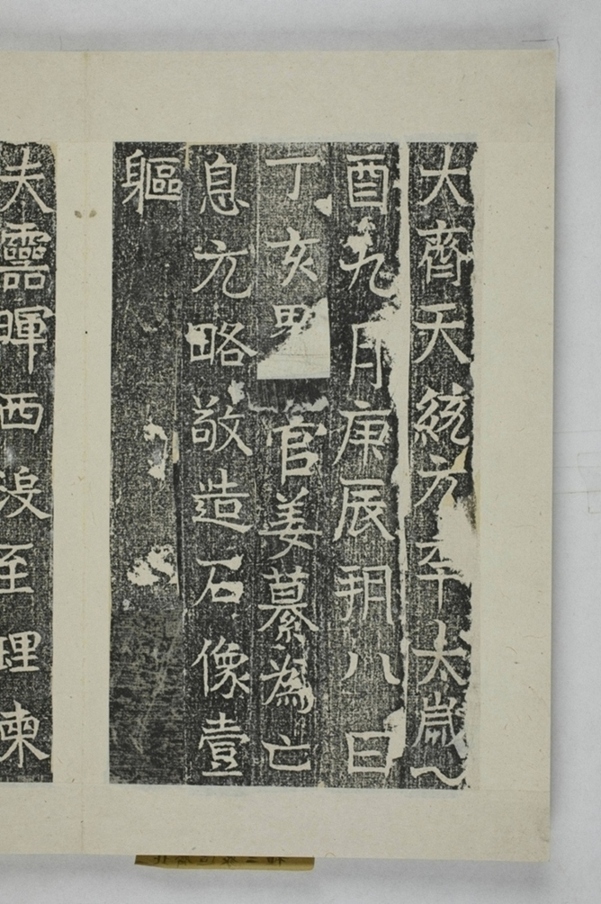 大齊天統元年大歲乙
酉九月庚辰朔八日
丁亥官姜纂為亡
息元略敬造石像壹
軀
夫靈暉西沒至理東